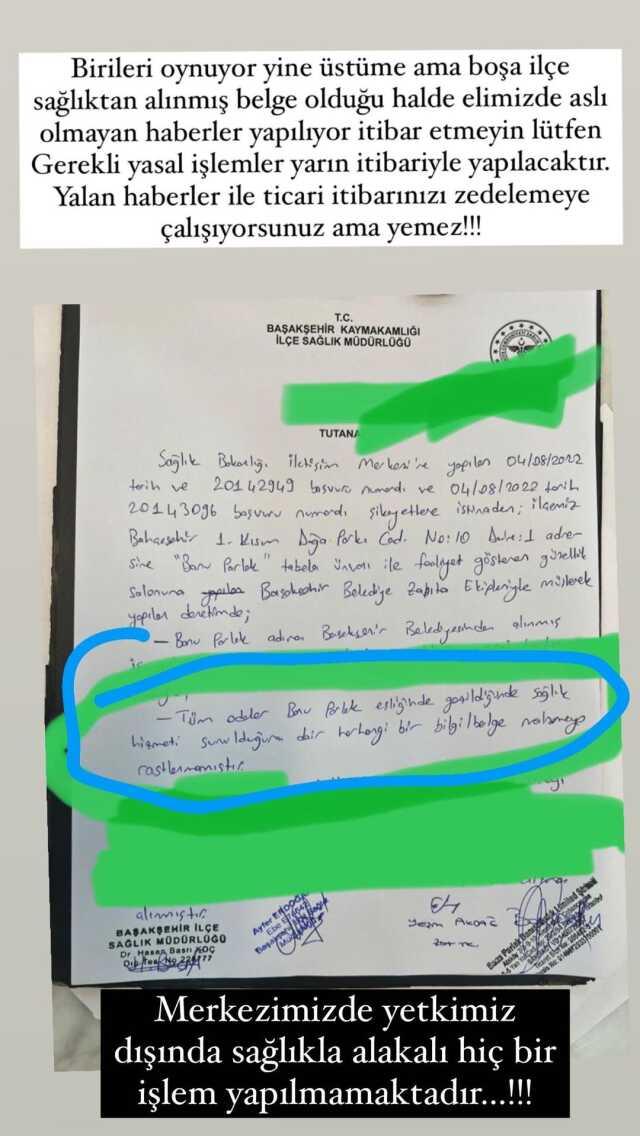 Birileri oynuyor yine üstüme ama boşa ilçe
sağlıktan alınmış belge olduğu halde elimizde aslı
olmayan haberler yapılıyor itibar etmeyin lütfen
Gerekli yasal işlemler yarın itibariyle yapılacaktır.
Yalan haberler ile ticari itibarınızı zedelemeye
çalışıyorsunuz ama yemez!!!
T.C.
BAŞAKŞEHİR KAYMAKAMLIĞI
İLÇE SAĞLIK MÜDÜRLÜĞÜ
TUTANA
Sağlık Bakanlığı İletişim Merkezi'ne yapılan 04/08/2022
tarih ve 20142949 başvuru numaralı ve 04/08/2022 tarih
20143096 başvuru numaralı şikayetlere istinaden; ilçemiz
Bahçeşehir 1. Kısım Doğa Parkı Cad. No:10 Daire:1 adre-
sine "Banu Parlak" tabela ünvanı ile faaliyet gösteren güzellik
salonuna yapılan Başakşehir Belediye Zabıta Ekipleriyle müşterek
yapılan denetimde;
- Banu Parlak adına Başakşehir Belediyesinden alınmış
- Tüm odalar Banu Parlak eşliğinde gezildiğinde sağlık
hizmeti sunulduğuna dair herhangi bir bilgi/belge malzemeye
rastlanmamıştır.
alınmıştır.
BAŞAKŞEHİR İLÇE
SAĞLIK MÜDÜRLÜĞÜ
Dr. Hasan Basri KOÇ
Merkezimizde yetkimiz
dışında sağlıkla alakalı hiç bir
işlem yapılmamaktadır...!!!